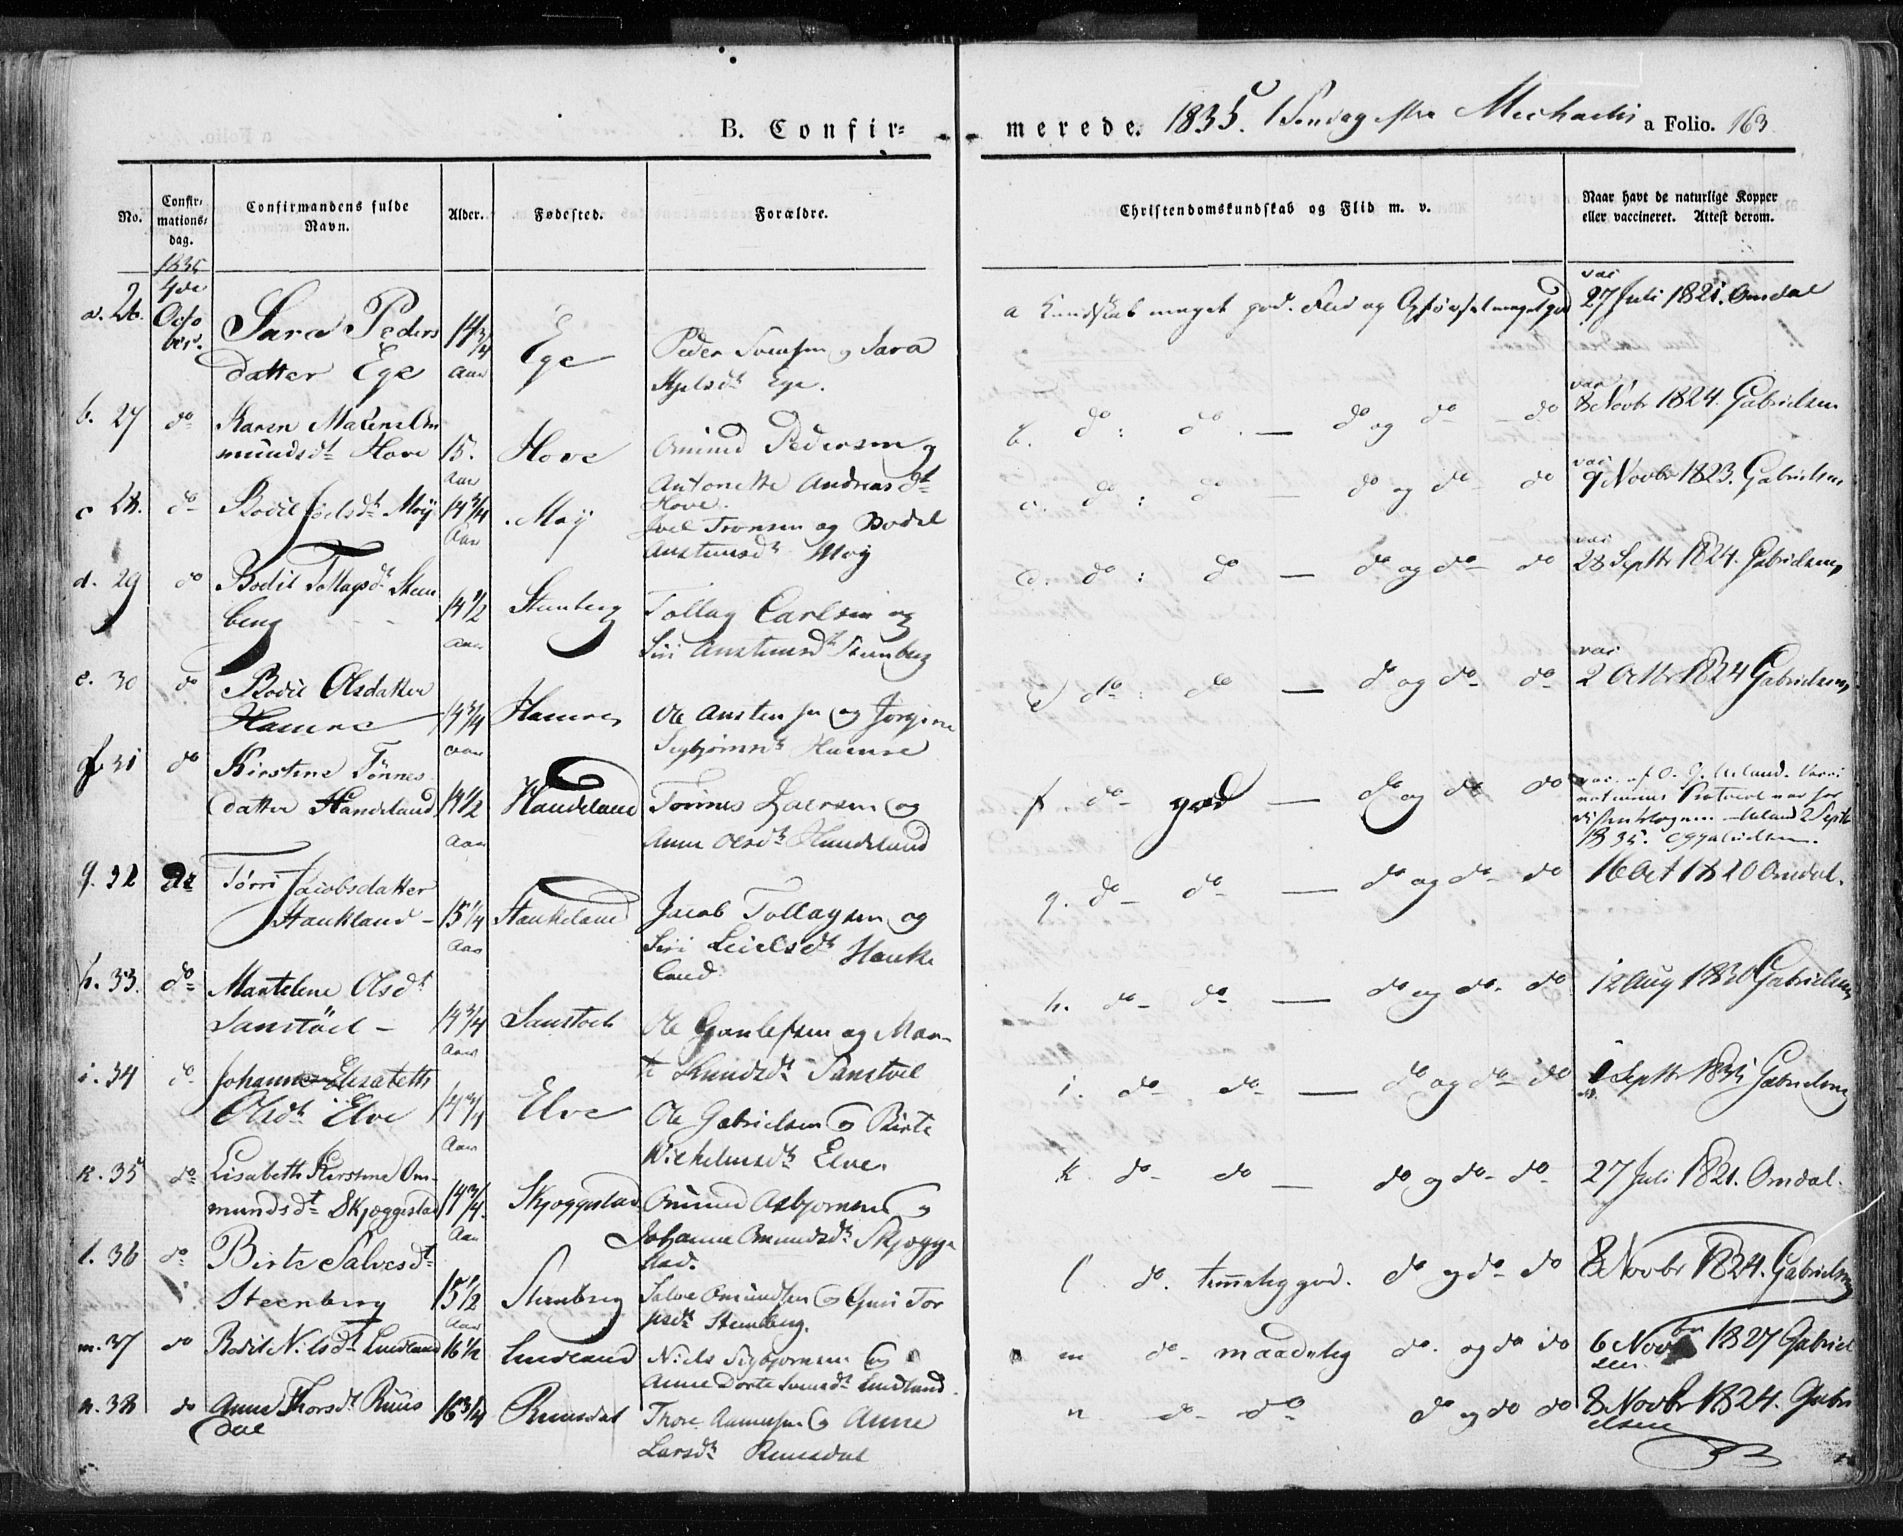 B. Confir-
merede. 1835. 1 Søndag efter Michaelis a Folio. 163
No.
Confir-
mations-
dag.
Confirmandens fulde
Navn.
Alder.
Fødested.
Forældre.
Christendomskundskab og Flid m. v.
Naar havt de naturlige Kopper
eller vaccineret. Attest derom.
1835
4de
a. 26. Octo
ber.
Sara Peders
datter Ege
14 3/4
Aar
Ege
Peder Svensen og Sara
Ege.
a Kundskab meget god. Flid og Opførsel meget god
vac
27 Juli 1821. Omdal
b. 27 do Karen Malene Om
mundsdt Hove
15.
Aar
Hove
Omund Pedersen og
Antonette Andreasdt
Hove.
b. do : do. — do og do — do
vac
8 Novbr 1824. Gabrielsen
c 28. do Bodil Joelsdt Moÿ
14 3/4
Aar
Moÿ
Joel Tronsen og Bodel
Austensdt Moÿ
c. do : do — do og do do
vac
9 Novbr 1823. Gabrielsen
d. 29 do Bodil Tollagsdt Sten
berg
14 1/2
Aar
Stenberg
Tollag Carlsen og
Siri Austensdt Stenberg
d. do : do — do og do do
vac
28 Septbr 1824. Gabrielsen
e. 30 do Bodil Olsdatter
Hamre
14 3/4
Aar
Hamre
Ole Austensen og Jorgine
Sigbjørnsdt Hamre
e do : do — do og do do
vac
2 Octbr 1824 Gabrielsen
f 31 do Kirstine Tønnes
datter Handeland
14 1/2
Aar
Handeland
Tønnes Larsen og
Anne Olsdt Handeland
f do god — do og do do
vac. af O. Ueland.
Protocol
Ueland 2 Septb
1835.
g. 32 do Tørri Jacobsdatter
Haukland
15 1/4
Aar
Haukeland
Jacob Tollagsen og
Siri Leielsdt Hauke
land
g. do do — do og do do
16 Oct 1820 Omdal.
h. 33. do Martelene Olsdt
Sanstöel
14 3/4
Aar
Sanstoel
Ole Gunlefsen og Mar-
te Knudsdt Sanstoel
h. do do — do og do do
12 Aug 1830 Gabrielsen
i. 34 do Johanne Elisabeth
Olsdt Elve
14 3/4
Aar
Elve
Ole Gabrielsen og Birte
Wilhelmsdt Elve
i. do do — do og do do
Septbr 1835 Gabrielsen
k. 35 do Lisabeth Kirstine Om-
mundsdt Skjæggestad
14 3/4.
Aar
Skjæggestad
Omund Asbjornsen og
Johanne Omundsdt Skjægge
stad.
k do do — do og do do
27 Juli 1821. Omdal.
l. 36 do Birte Salvesdt
Steenberg
15 1/2
Aar
Stenberg
Salve Omundsen og Guri Tor
Stenberg.
l do. temmelig god. do og do do
8 Novbr 1824. Gabrielsen
m. 37 do Bodil Nilsdt Lindland
16 1/2
Lindland
Niels Sigbjornsen og
Anne Dorte Svensdt Lindland
m do maadelig do. og do do
6 Novbr 1827 Gabriel
sen.
n. 38 do Anne Thorsdt Ruus
dal
16 3/4
Ruusdal
Thore Aanensen og Anne
Larsdt Ruusdal
n do do do og do do
8 Novbr 1824. Gabri
elsen